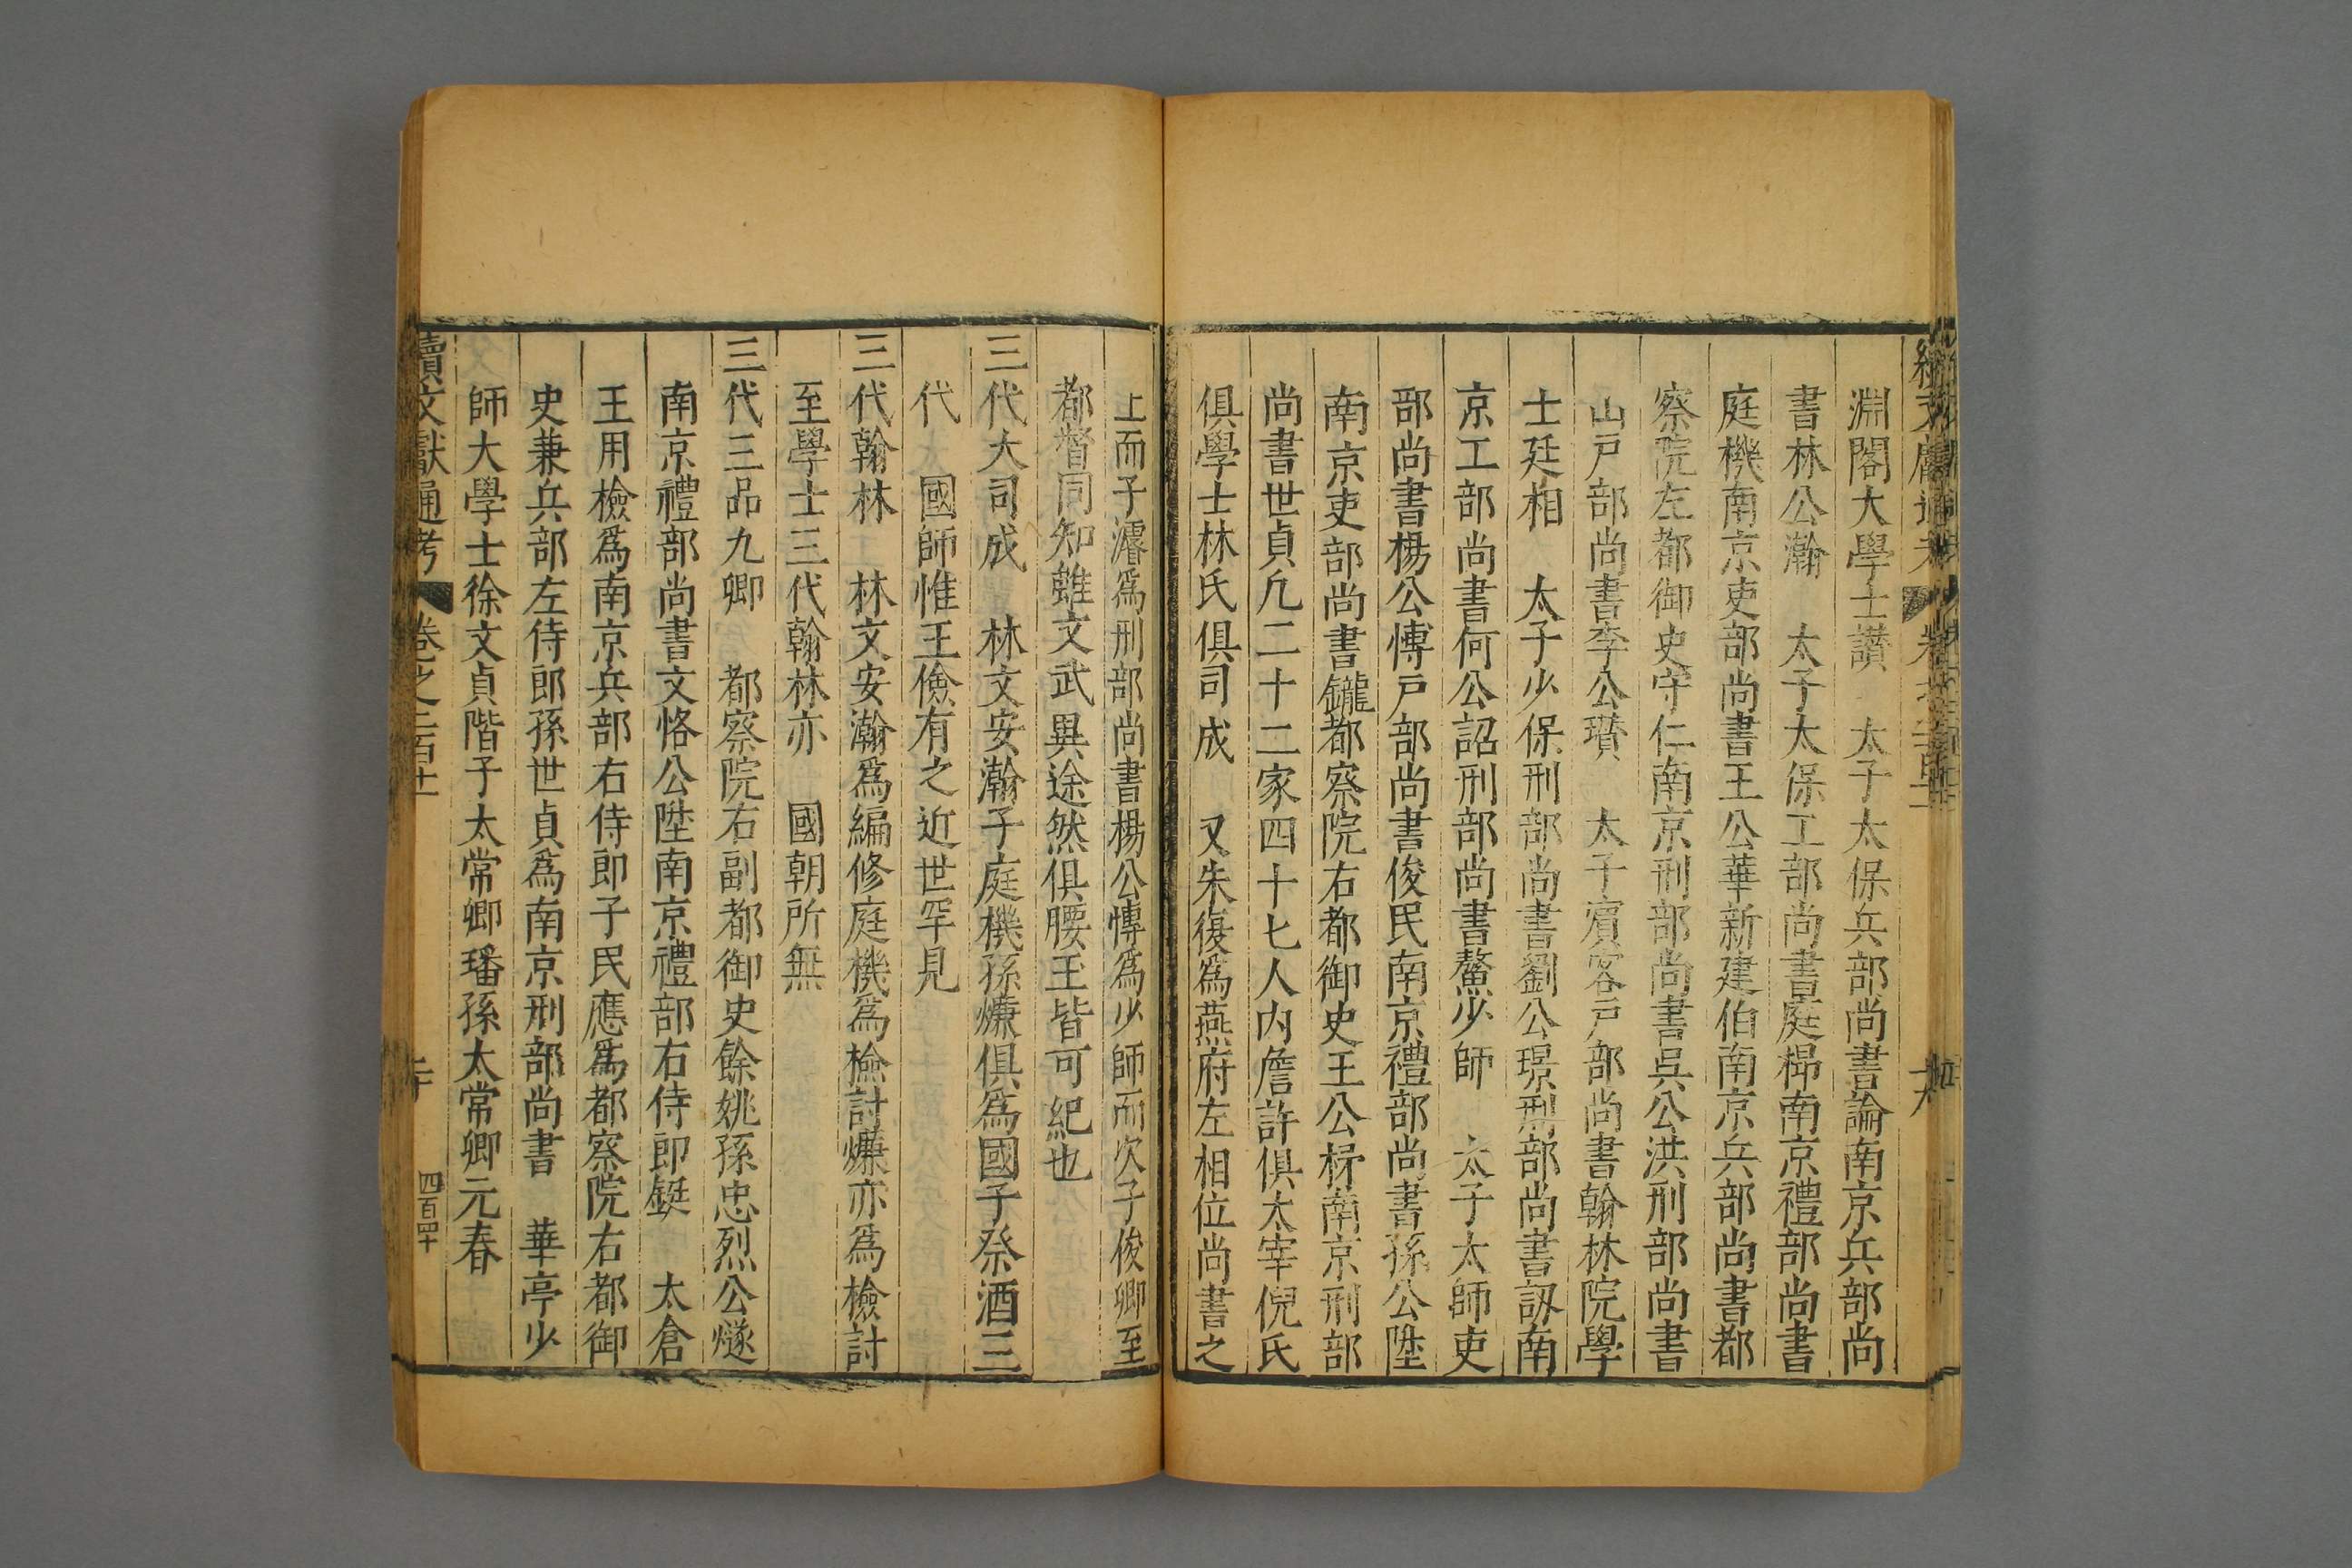 淵閣大學士讃 太子太保兵部尚書論南京兵部尚
書林公瀚 太子太保工部尚書庭㭿南京禮部尚書
庭機南京吏部尚書王公華新建伯南京兵部尚書都
察院左都御史守仁南京刑部尚書吳公洪刑部尚書
山戶部尚書李公瓚 太子賓客戶部尚書翰林院學
士廷相 太子少保刑部尚書劉公璟刑部尚書訒南
京工部尚書何公詔刑部尚書鰲少師 太子太師吏
部尚書楊公博戶部尚書俊民南京禮部尚書孫公陞
南京吏部尚書鑨都察院右都御史王公㭒南京刑部
尚書世貞凡二十二家四十七人内詹許俱太宰倪氏
俱學士林氏俱司成 又朱復為燕府左相位尚書之
上而子濬爲刑部尚書楊公博爲少師而次子俊卿至
都督同知雖文武異途然俱腰玉皆可紀也
三代大司成 林文安瀚子庭機孫爌俱爲國子祭酒三
代 國師惟王儉有之近世罕見
三代翰林 林文安瀚爲編修庭機爲檢討爌亦爲檢討
至學士三代翰林亦 國朝所無
三代三品九卿 都察院右副都御史餘姚孫忠烈公燧
南京禮部尚書文恪公陞南京禮部右侍郎鋌 太倉
王用檢爲南京兵部右侍郎子民應爲都察院右都御
史兼兵部左侍郎孫世貞爲南京刑部尚書 華亭少
師大學士徐文貞階子太常卿璠孫太常卿元春
續文獻通考 卷之二百十一 二十 四百四十